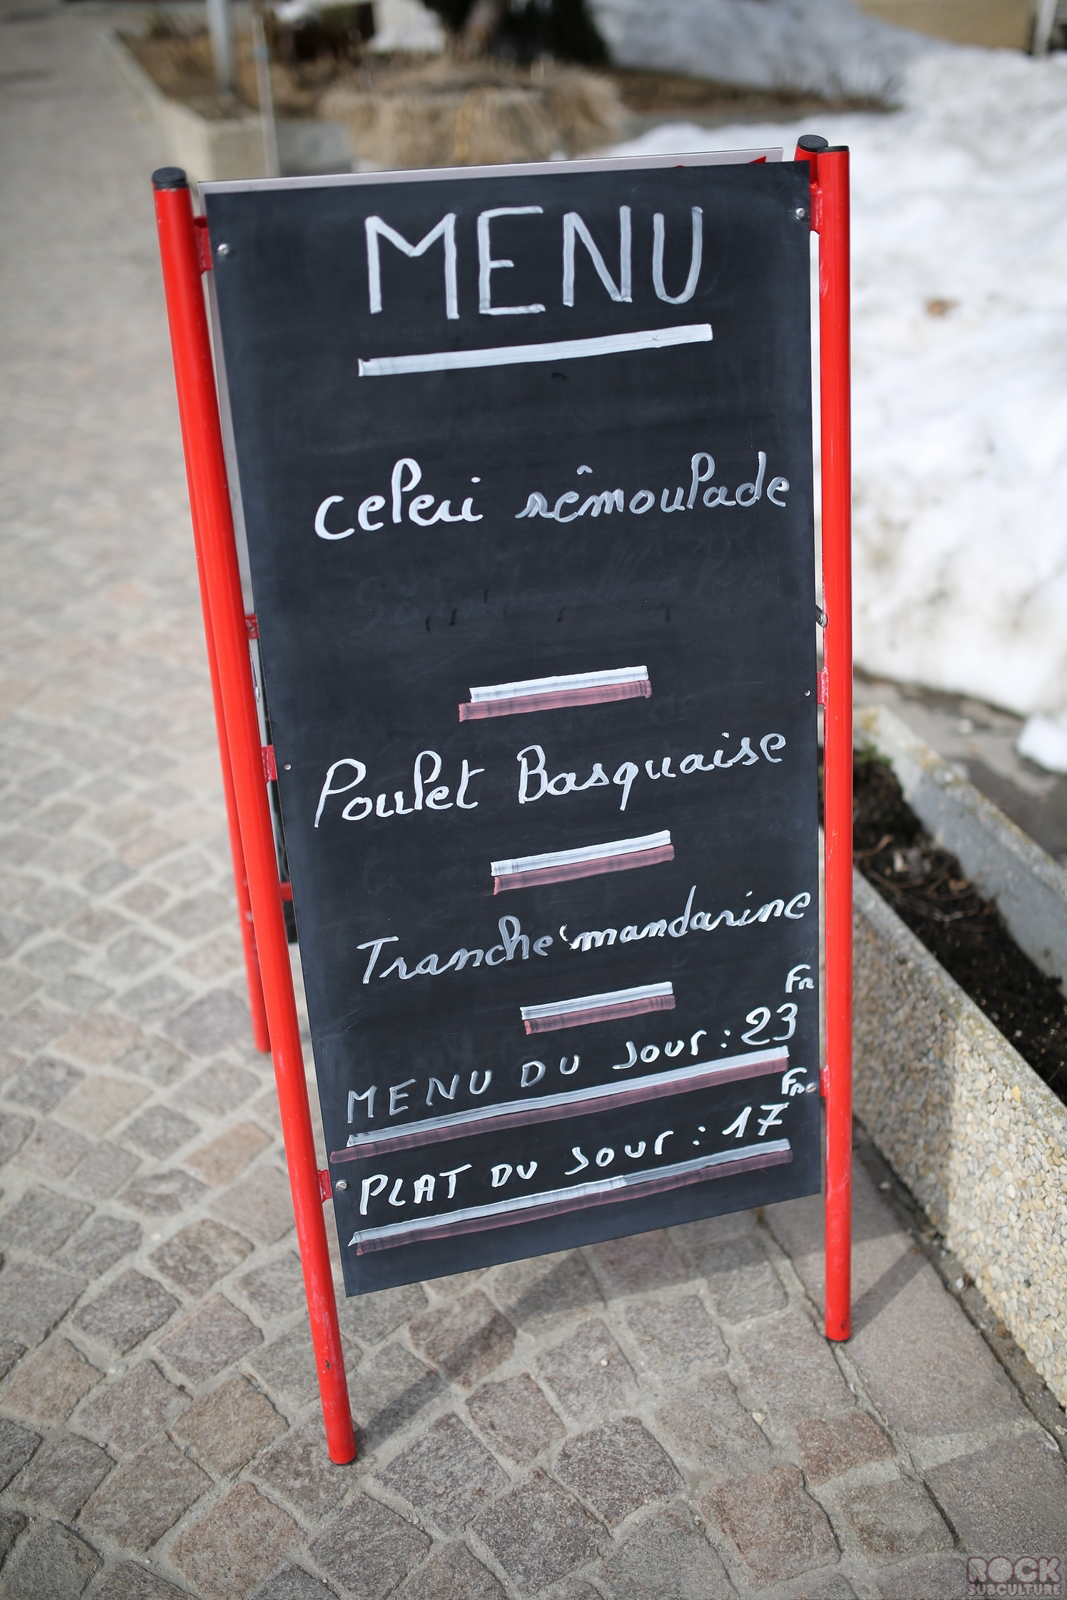 MENU
celeri rêmoulade
Poulet Basquaise
Tranche mandarine
Fr
MENU DU Jour : 23
Frs
PLAT DU Jour : 17
ROCK
SUBCULTURE